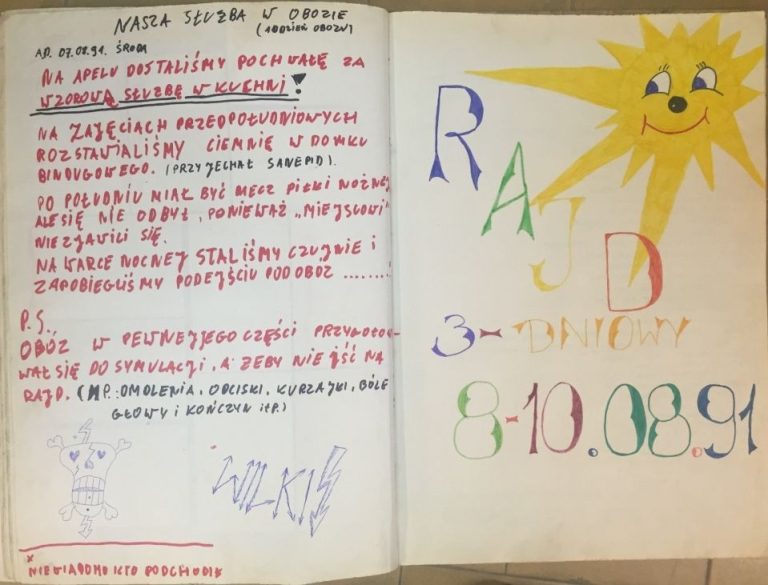 NASZA SŁUŻBA W OBOZIE
(1 DZIEŃ OBOZU)
AD. 07.08.91. ŚRODA
NA APELU DOSTALIŚMY POCHWAŁĘ ZA
WZOROWĄ SŁUŻBĘ W KUCHNI!
NA ZAJĘCIACH PRZEDPOŁUDNIOWYCH
ROZSTAWIALIŚMY CIEMNIĘ W DOMKU
BINDUGOWEGO. (PRZYJECHAŁ SANEPID).
PO POŁUDNIU MIAŁ BYĆ MECZ PIŁKI NOŻNEJ
ALE SIĘ NIE ODBYŁ, PONIEWAŻ „MIEJSCOWI"
NIE ZJAWILI SIĘ.
NA WARCE NOCNEJ STALIŚMY CZUJNIE I
ZAPOBIEGLIŚMY PODEJŚCIU POD OBÓZ ........*
P.S.
OBÓZ W PEWNEJ JEGO CZĘŚCI PRZYGOTOWY-
WAŁ SIĘ DO SYMULACJI, A ŻEBY NIE IŚĆ NA
RAJD. (NP.: OMDLENIA, ODCISKI, KURZAJKI, BÓLE
GŁOWY I KOŃCZYN ITP.)
WILKI
* NIEWIADOMO KTO PODCHODIŁ
RAJD
3-DNIOWY
8-10.08.91